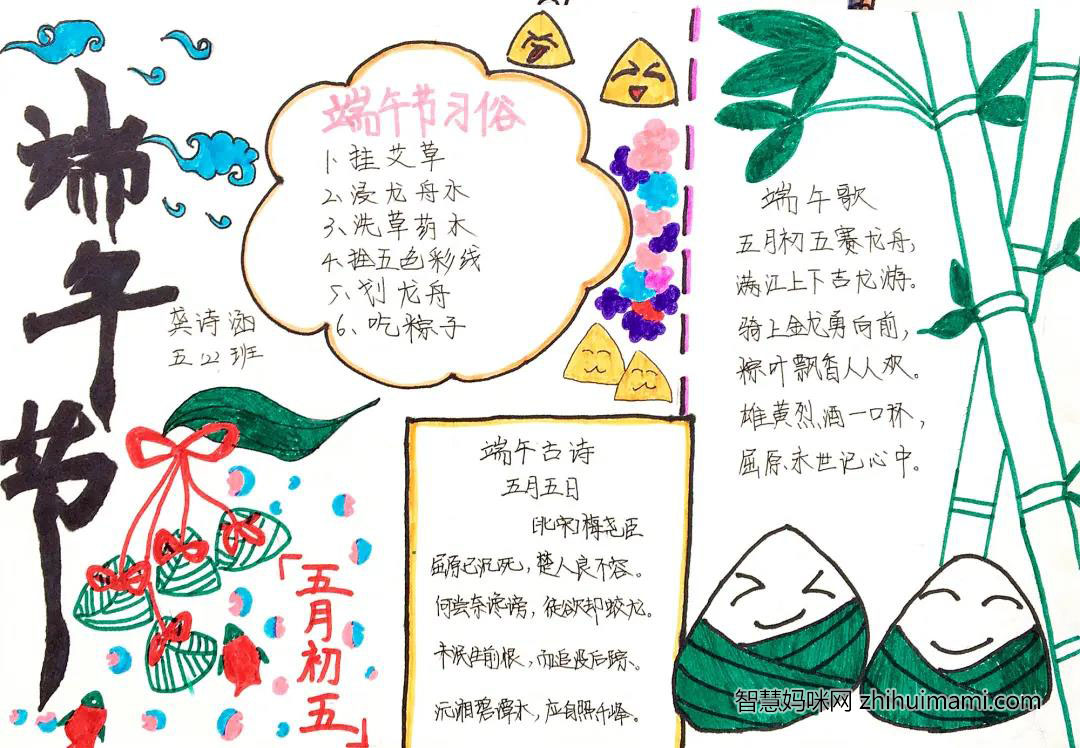 端午节
龚诗涵
五.22班
端午节习俗
1、挂艾草
2、浸龙舟水
3、洗草药水
4、拴五色彩线
5、划龙舟
6、吃粽子
「五月初五」
端午古诗
五月五日
[北宋]梅尧臣
屈原已沉死，楚人良不容。
何尝奈谗谤，徒欲却蛟龙。
未泯生前恨，而追没后踪。
沅湘碧潭水，应自照千峰。
端午歌
五月初五赛龙舟，
满江上下吉龙游。
骑上金龙勇向前，
粽叶飘香人人欢。
雄黄烈酒一口杯，
屈原永世记心中。
智慧妈咪网 zhihuimami.com